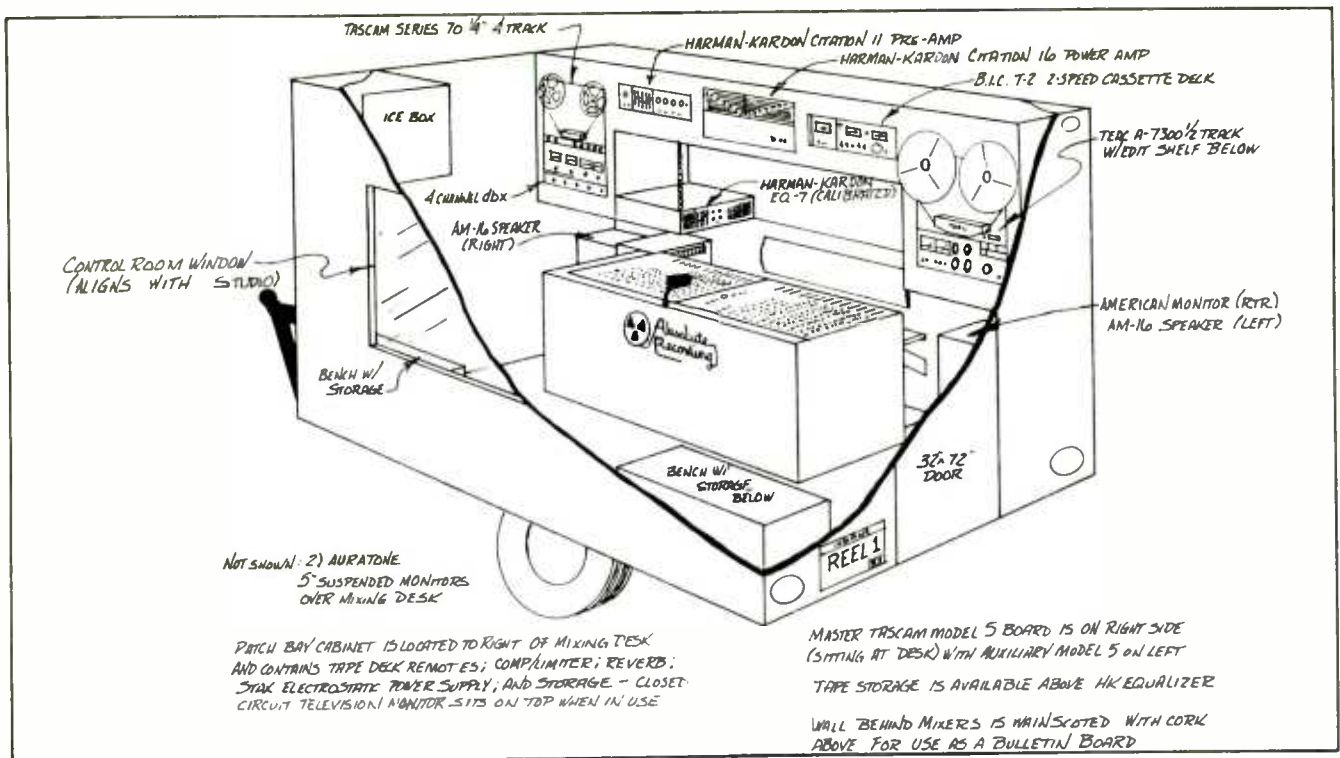 TASCAM SERIES 70 1/4" 4 TRACK
HARMAN-KARDON CITATION 11 PRE-AMP
HARMAN-KARDON CITATION 16 POWER AMP
B.I.C. T-2 2-SPEED CASSETTE DECK
ICE BOX
TEAC A-7300 1/2 TRACK
W/EDIT SHELF BELOW
4 CHANNEL dbx
HARMAN-KARDON
EQ-7 (CALIBRATED)
AM-16 SPEAKER
(RIGHT)
CONTROL ROOM WINDOW
(ALIGNS WITH STUDIO)
Absolute
Recording
AMERICAN MONITOR (RTR)
AM-16 SPEAKER (LEFT)
BENCH W/
STORAGE
BENCH W/
STORAGE
BELOW
32"x 72"
DOOR
REEL 1
NOT SHOWN: 2) AURATONE
5" SUSPENDED MONITORS
OVER MIXING DESK
PATCH BAY CABINET IS LOCATED TO RIGHT OF MIXING DESK
AND CONTAINS TAPE DECK REMOTES; COMP/LIMITER; REVERB;
STAX ELECTROSTATIC POWER SUPPLY; AND STORAGE - CLOSED
CIRCUIT TELEVISION MONITOR SITS ON TOP WHEN IN USE
MASTER TASCAM MODEL 5 BOARD IS ON RIGHT SIDE
(SITTING AT DESK) WITH AUXILIARY MODEL 5 ON LEFT
TAPE STORAGE IS AVAILABLE ABOVE HK EQUALIZER
WALL BEHIND MIXERS IS WAINSCOTED WITH CORK
ABOVE FOR USE AS A BULLETIN BOARD